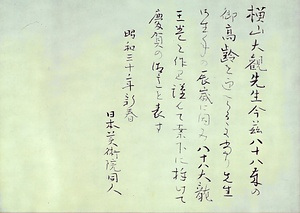 横山大観先生今茲八十八歳の
御高齢を迎へらるるあり先生
御生年の辰歳に因み八十八大龍
王巻を作り謹んで案下に捧げて
慶賀の微意を表す
昭和三十一年新春
日本美術院同人